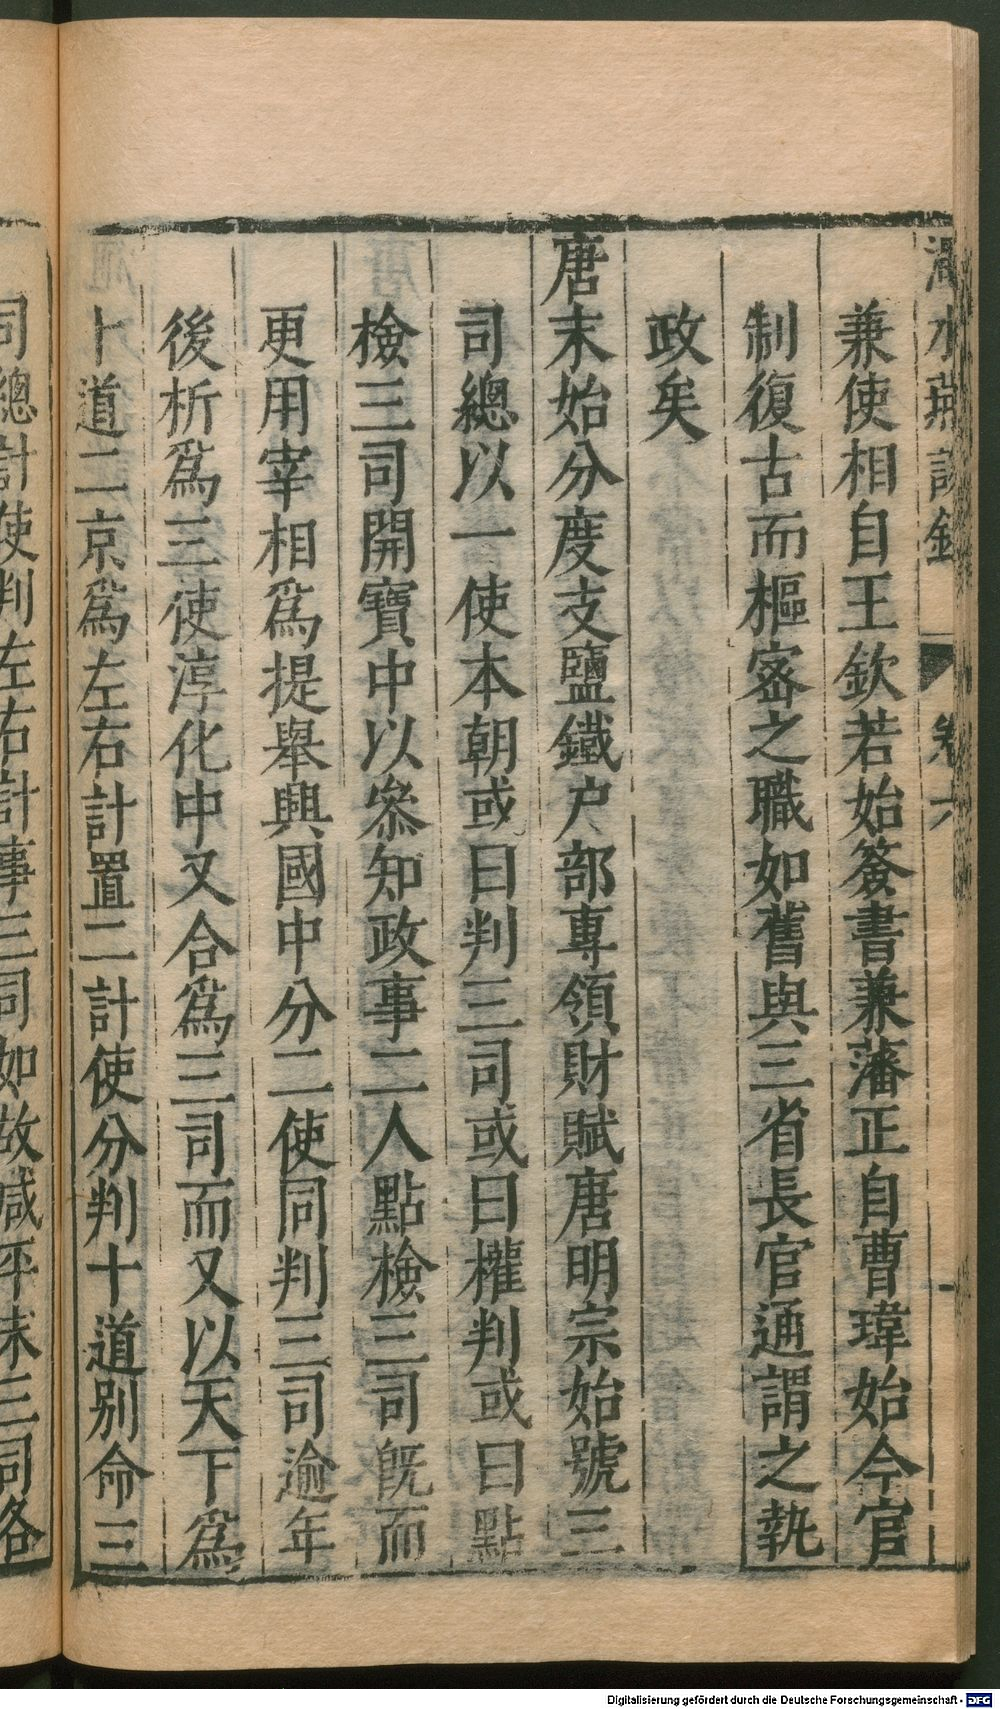 澠水燕談錄 卷六
兼使相自王欽若始簽書兼藩正自曹瑋始今官
制復古而樞密之職如舊與三省長官通謂之執
政矣
唐末始分度支鹽鐵户部專領財賦唐明宗始號三
司總以一使本朝或曰判三司或曰權判或曰點
檢三司開寶中以叅知政事二人點檢三司旣而
更用宰相爲提舉興國中分二使同判三司逾年
後析爲三使淳化中又合爲三司而又以天下爲
十道二京爲左右計置二計使分判十道别命三
司總計使判左右計事三司如故咸平末三司各
Digitalisierung gefördert durch die Deutsche Forschungsgemeinschaft - DFG